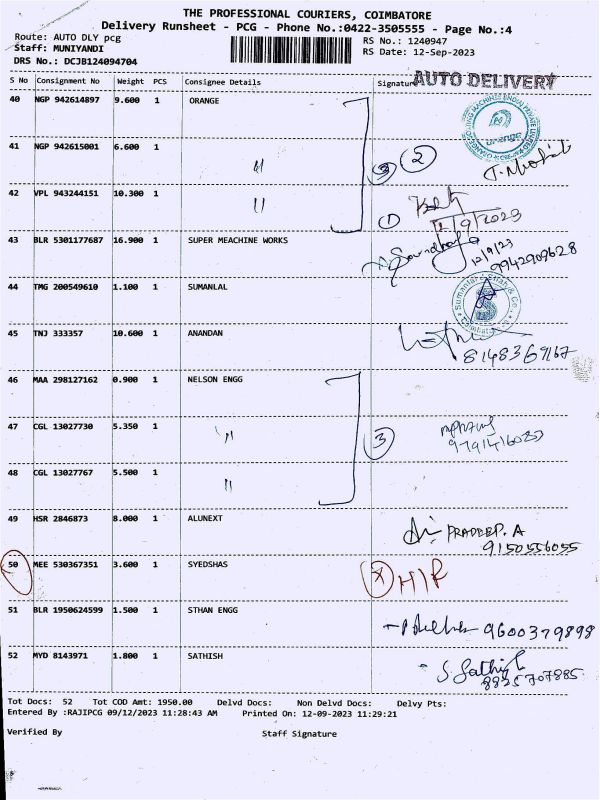 THE PROFESSIONAL COURIERS, COIMBATORE
Delivery Runsheet - PCG - Phone No.:0422-3505555 - Page No.:4
Route: AUTO DLY pcg RS No.: 1240947
Staff: MUNIYANDI RS Date: 12-Sep-2023
DRS No.: DCJB124094704
AUTO DELIVERY
S No Consignment No Weight PCS Consignee Details Signature
40 NGP 942614897 9.600 1 ORANGE
41 NGP 942615001 6.600 1 〃
② 
42 VPL 943244151 10.300 1 〃
①
12/9/2023
43 BLR 5301177687 16.900 1 SUPER MEACHINE WORKS
12/9/23
9942909628
44 TMG 200549610 1.100 1 SUMANLAL
45 TNJ 333357 10.600 1 ANANDAN
8148369167
46 MAA 298127162 0.900 1 NELSON ENGG
47 CGL 13027730 5.350 1 〃
③
48 CGL 13027767 5.500 1 〃
49 HSR 2846873 8.000 1 ALUNEXT
PRADEEP. A
9150556055
50 MEE 530367351 3.600 1 SYEDSHAS
51 BLR 1950624599 1.500 1 STHAN ENGG
9600379898
52 MYD 8143971 1.800 1 SATHISH
S. Sathish
8825707885
Tot Docs: 52 Tot COD Amt: 1950.00 Delvd Docs: Non Delvd Docs: Delvy Pts:
Entered By :RAJIPCG 09/12/2023 11:28:43 AM Printed On: 12-09-2023 11:29:21
Verified By Staff Signature